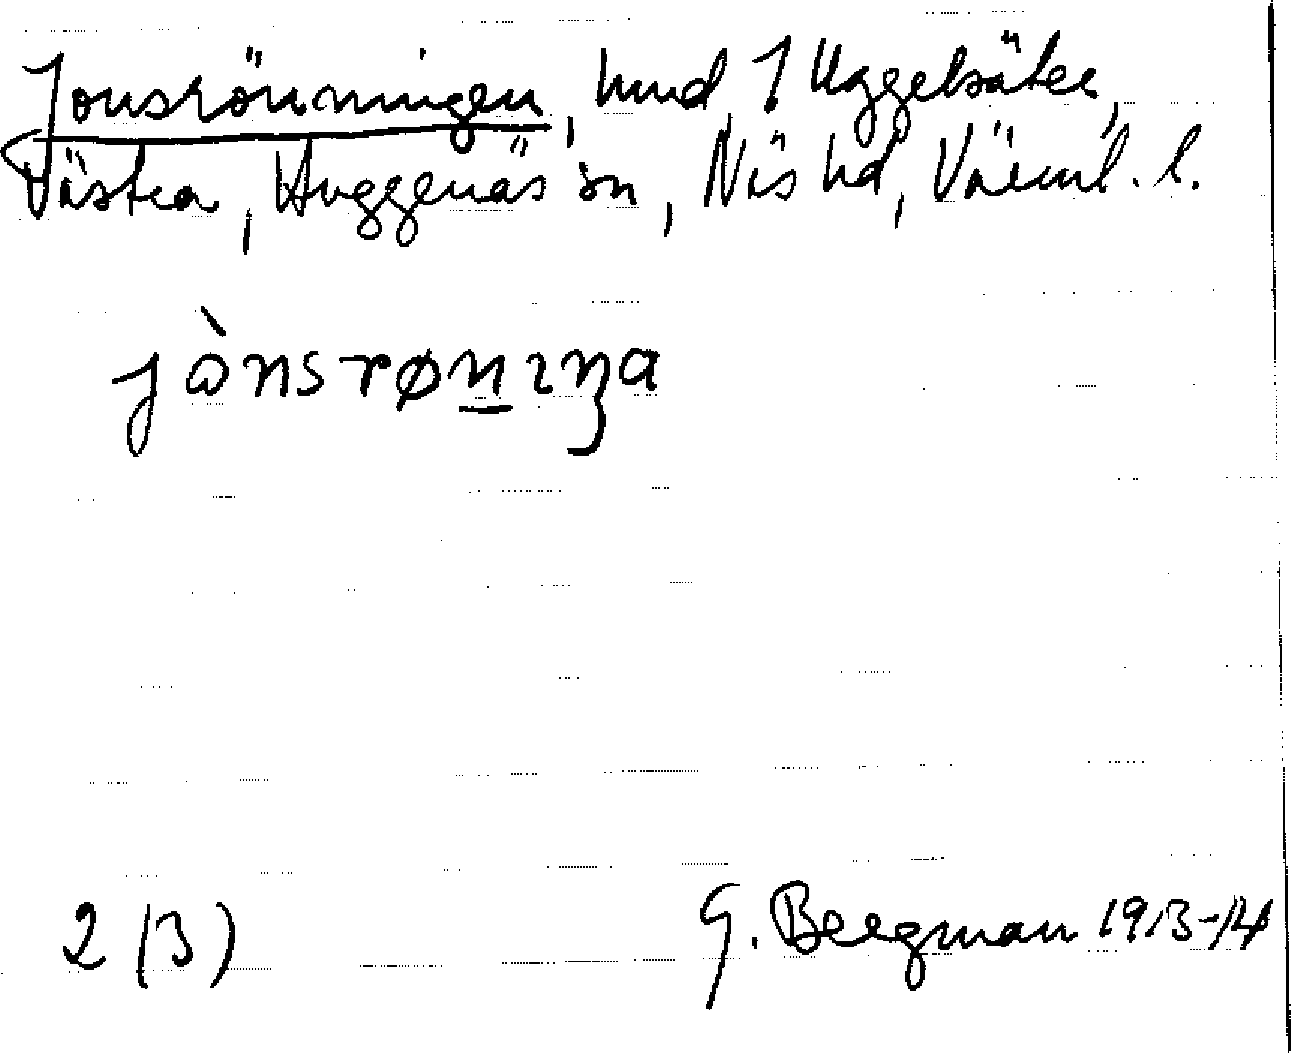 Jonsrönningen, hmd 1 Uggelsäter,
Västra, Huggenäs sn, Näs hd, Värml. l.
jònsrønɪŋa
2 (3)
G. Bergman 1913-14